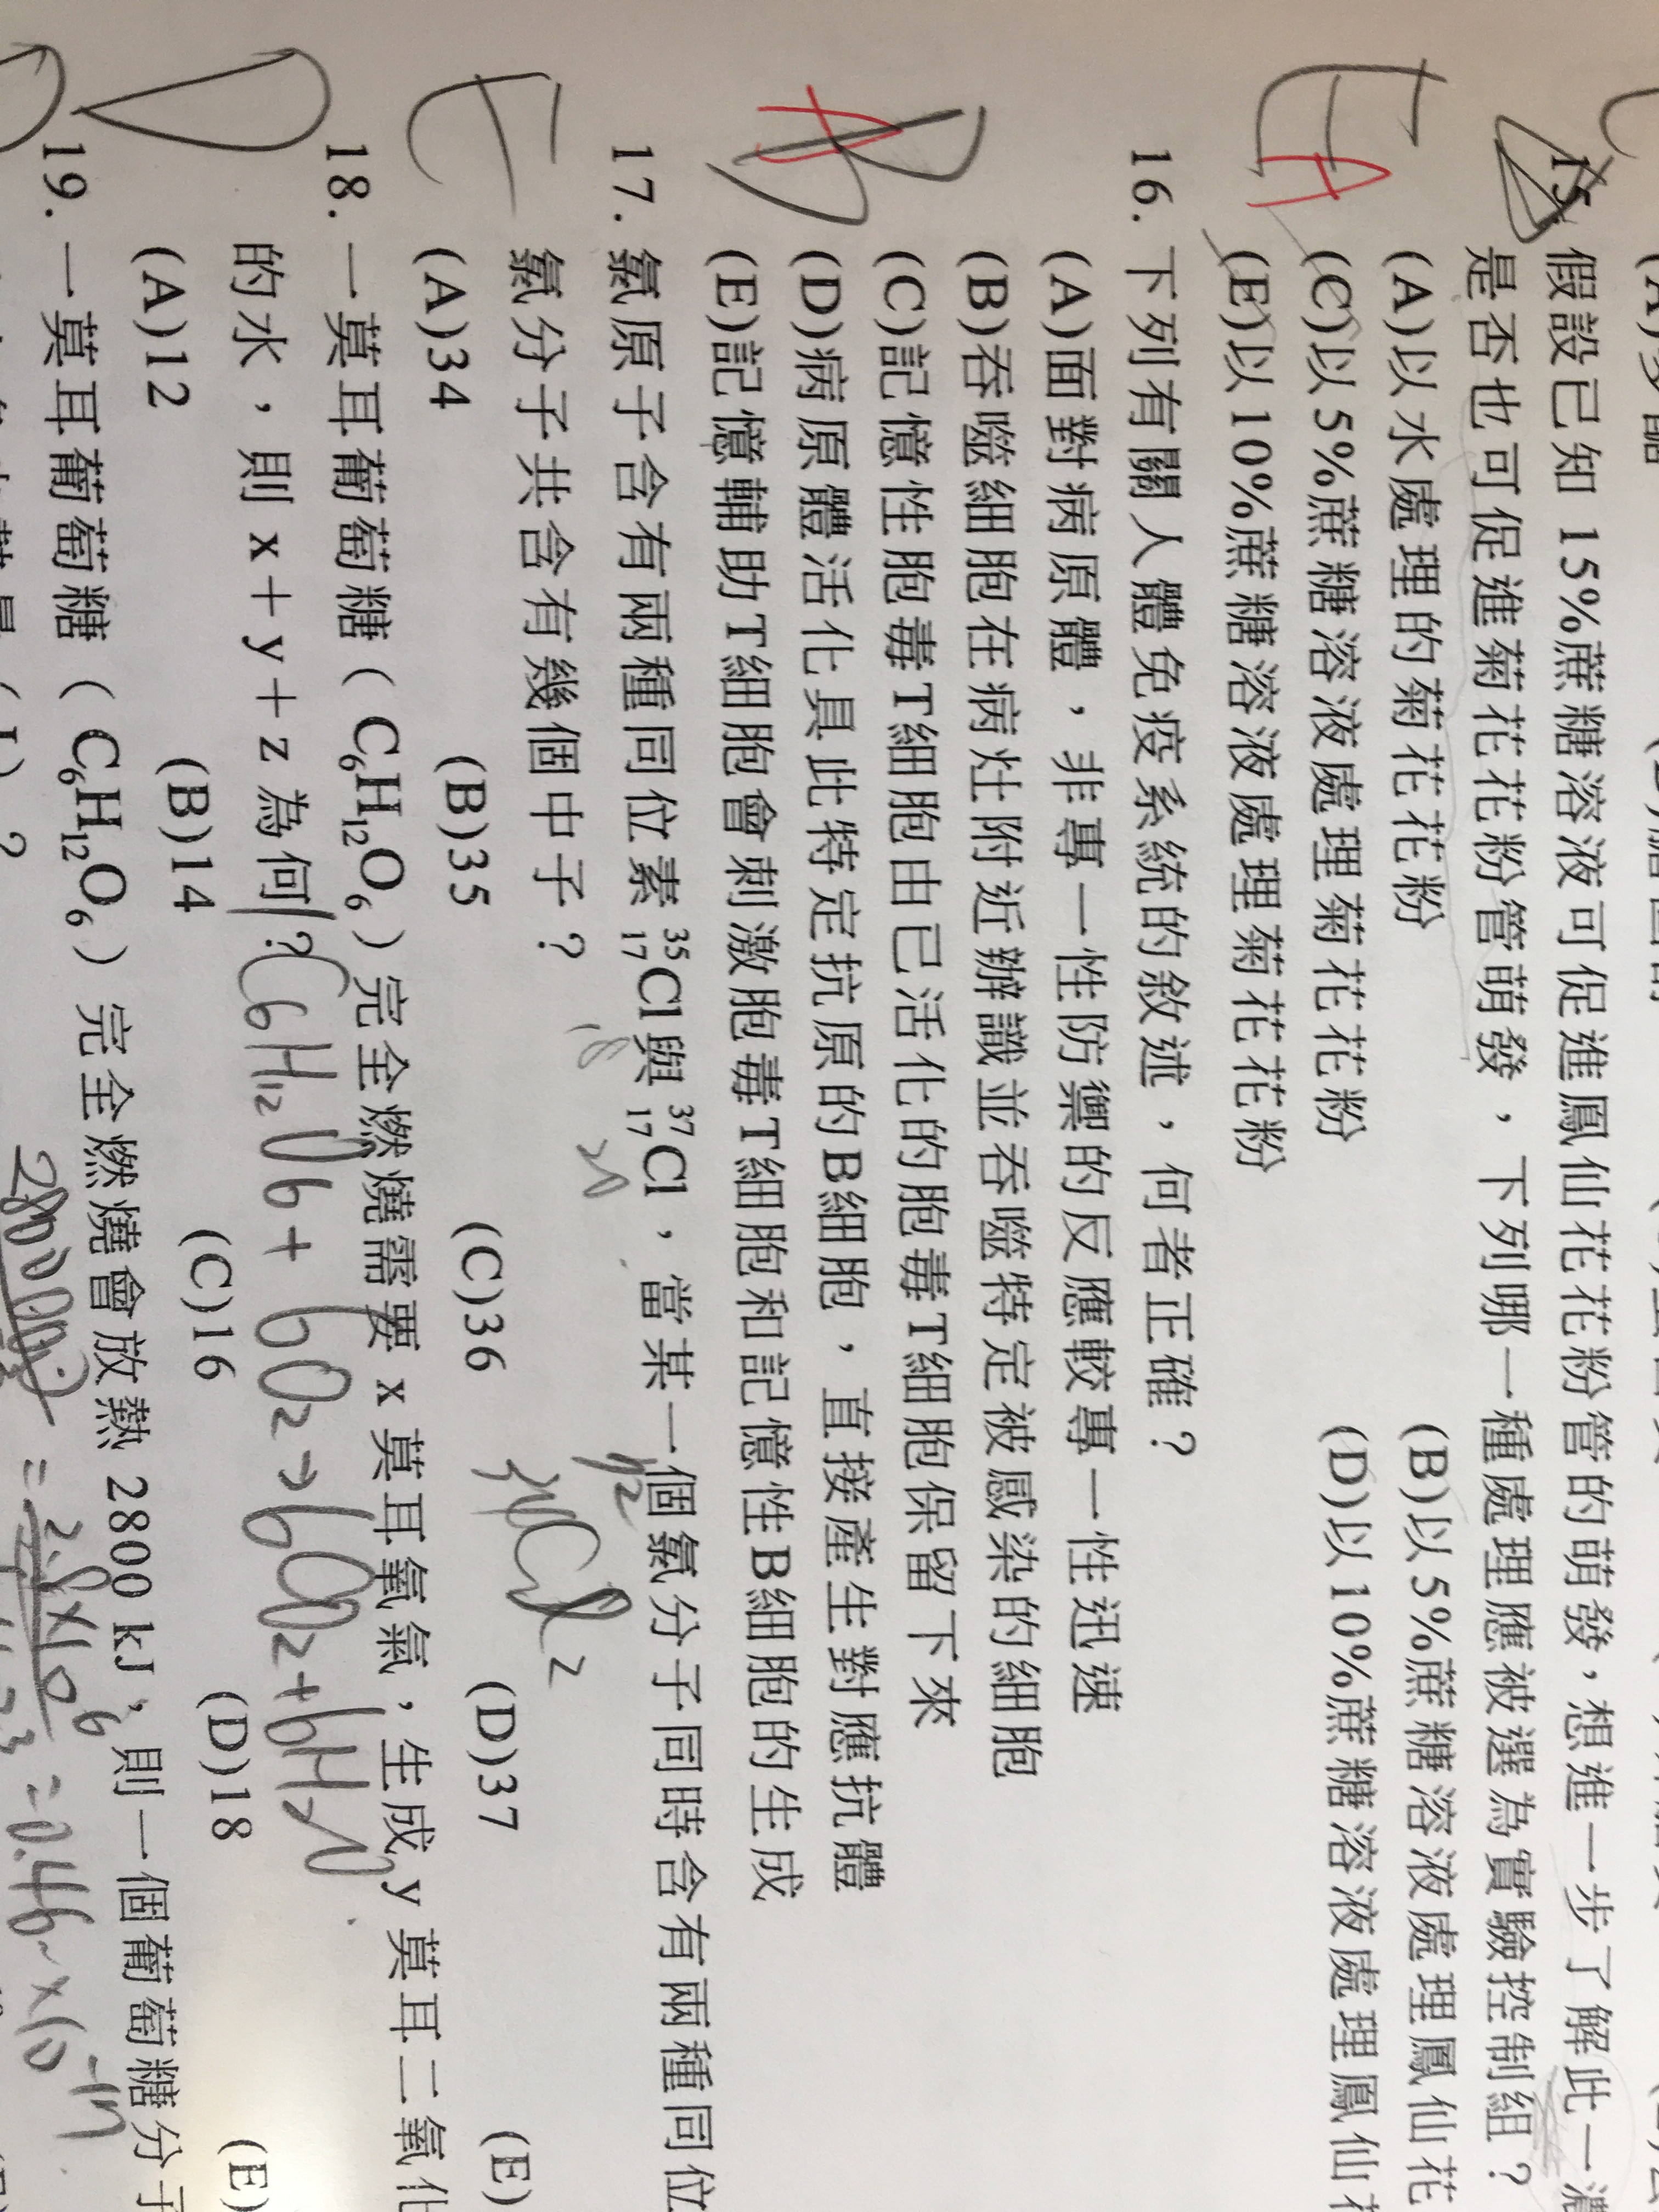 15. 假設已知 15%蔗糖溶液可促進鳳仙花花粉管的萌發，想進一步了解此一濃
是否也可促進菊花花粉管萌發，下列哪一種處理應被選為實驗控制組？
(A)以水處理的菊花花粉 (B)以5%蔗糖溶液處理鳳仙花
(C)以5%蔗糖溶液處理菊花花粉 (D)以10%蔗糖溶液處理鳳仙花
(E)以10%蔗糖溶液處理菊花花粉
EA
16. 下列有關人體免疫系統的敘述，何者正確？
(A)面對病原體，非專一性防禦的反應較專一性迅速
(B)吞噬細胞在病灶附近辦識並吞噬特定被感染的細胞
(C)記憶性胞毒T細胞由已活化的胞毒T細胞保留下來
(D)病原體活化具此特定抗原的B細胞，直接產生對應抗體
(E)記憶輔助T細胞會刺激胞毒T細胞和記憶性B細胞的生成
B A
17. 氯原子含有兩種同位素 ³⁵₁₇Cl與 ³⁷₁₇Cl，當某一個氯分子同時含有兩種同位
18 20
氯分子共含有幾個中子？
Cl₂
(A)34 (B)35 (C)36 (D)37 (E)
E
18. 一莫耳葡萄糖（C₆H₁₂O₆）完全燃燒需要 x 莫耳氧氣，生成 y 莫耳二氧化
的水，則 x＋y＋z 為何？
C₆H₁₂O₆ + 6O₂ → 6CO₂ + 6H₂O
(A)12 (B)14 (C)16 (D)18 (E)
D
19. 一莫耳葡萄糖（C₆H₁₂O₆）完全燃燒會放熱 2800 kJ，則一個葡萄糖分子